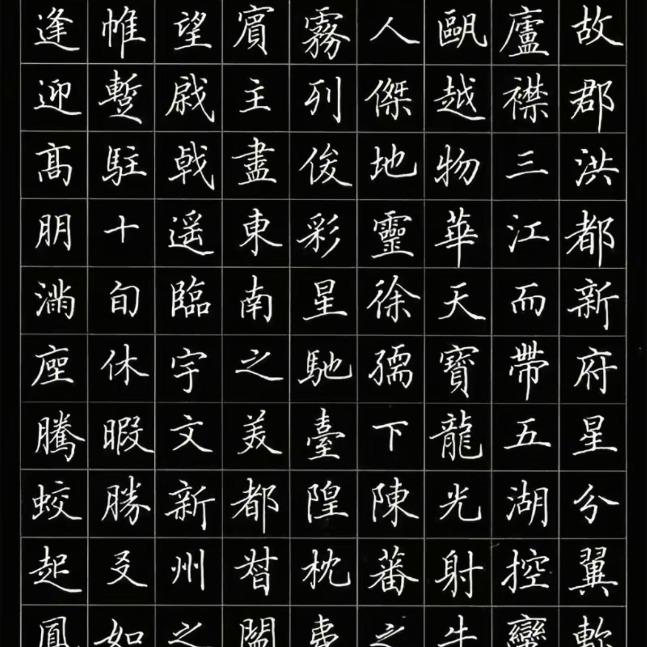 故郡洪都新府星分翼軫
廬襟三江而帶五湖控蠻
甌越物華天寶龍光射牛
人傑地靈徐孺下陳蕃之
霧列俊彩星馳臺隍枕夷
賓主盡東南之美都督閻
望戟遥臨宇文新州之
帷暫駐十旬休暇勝友如
逢迎髙朋滿座騰蛟起鳳